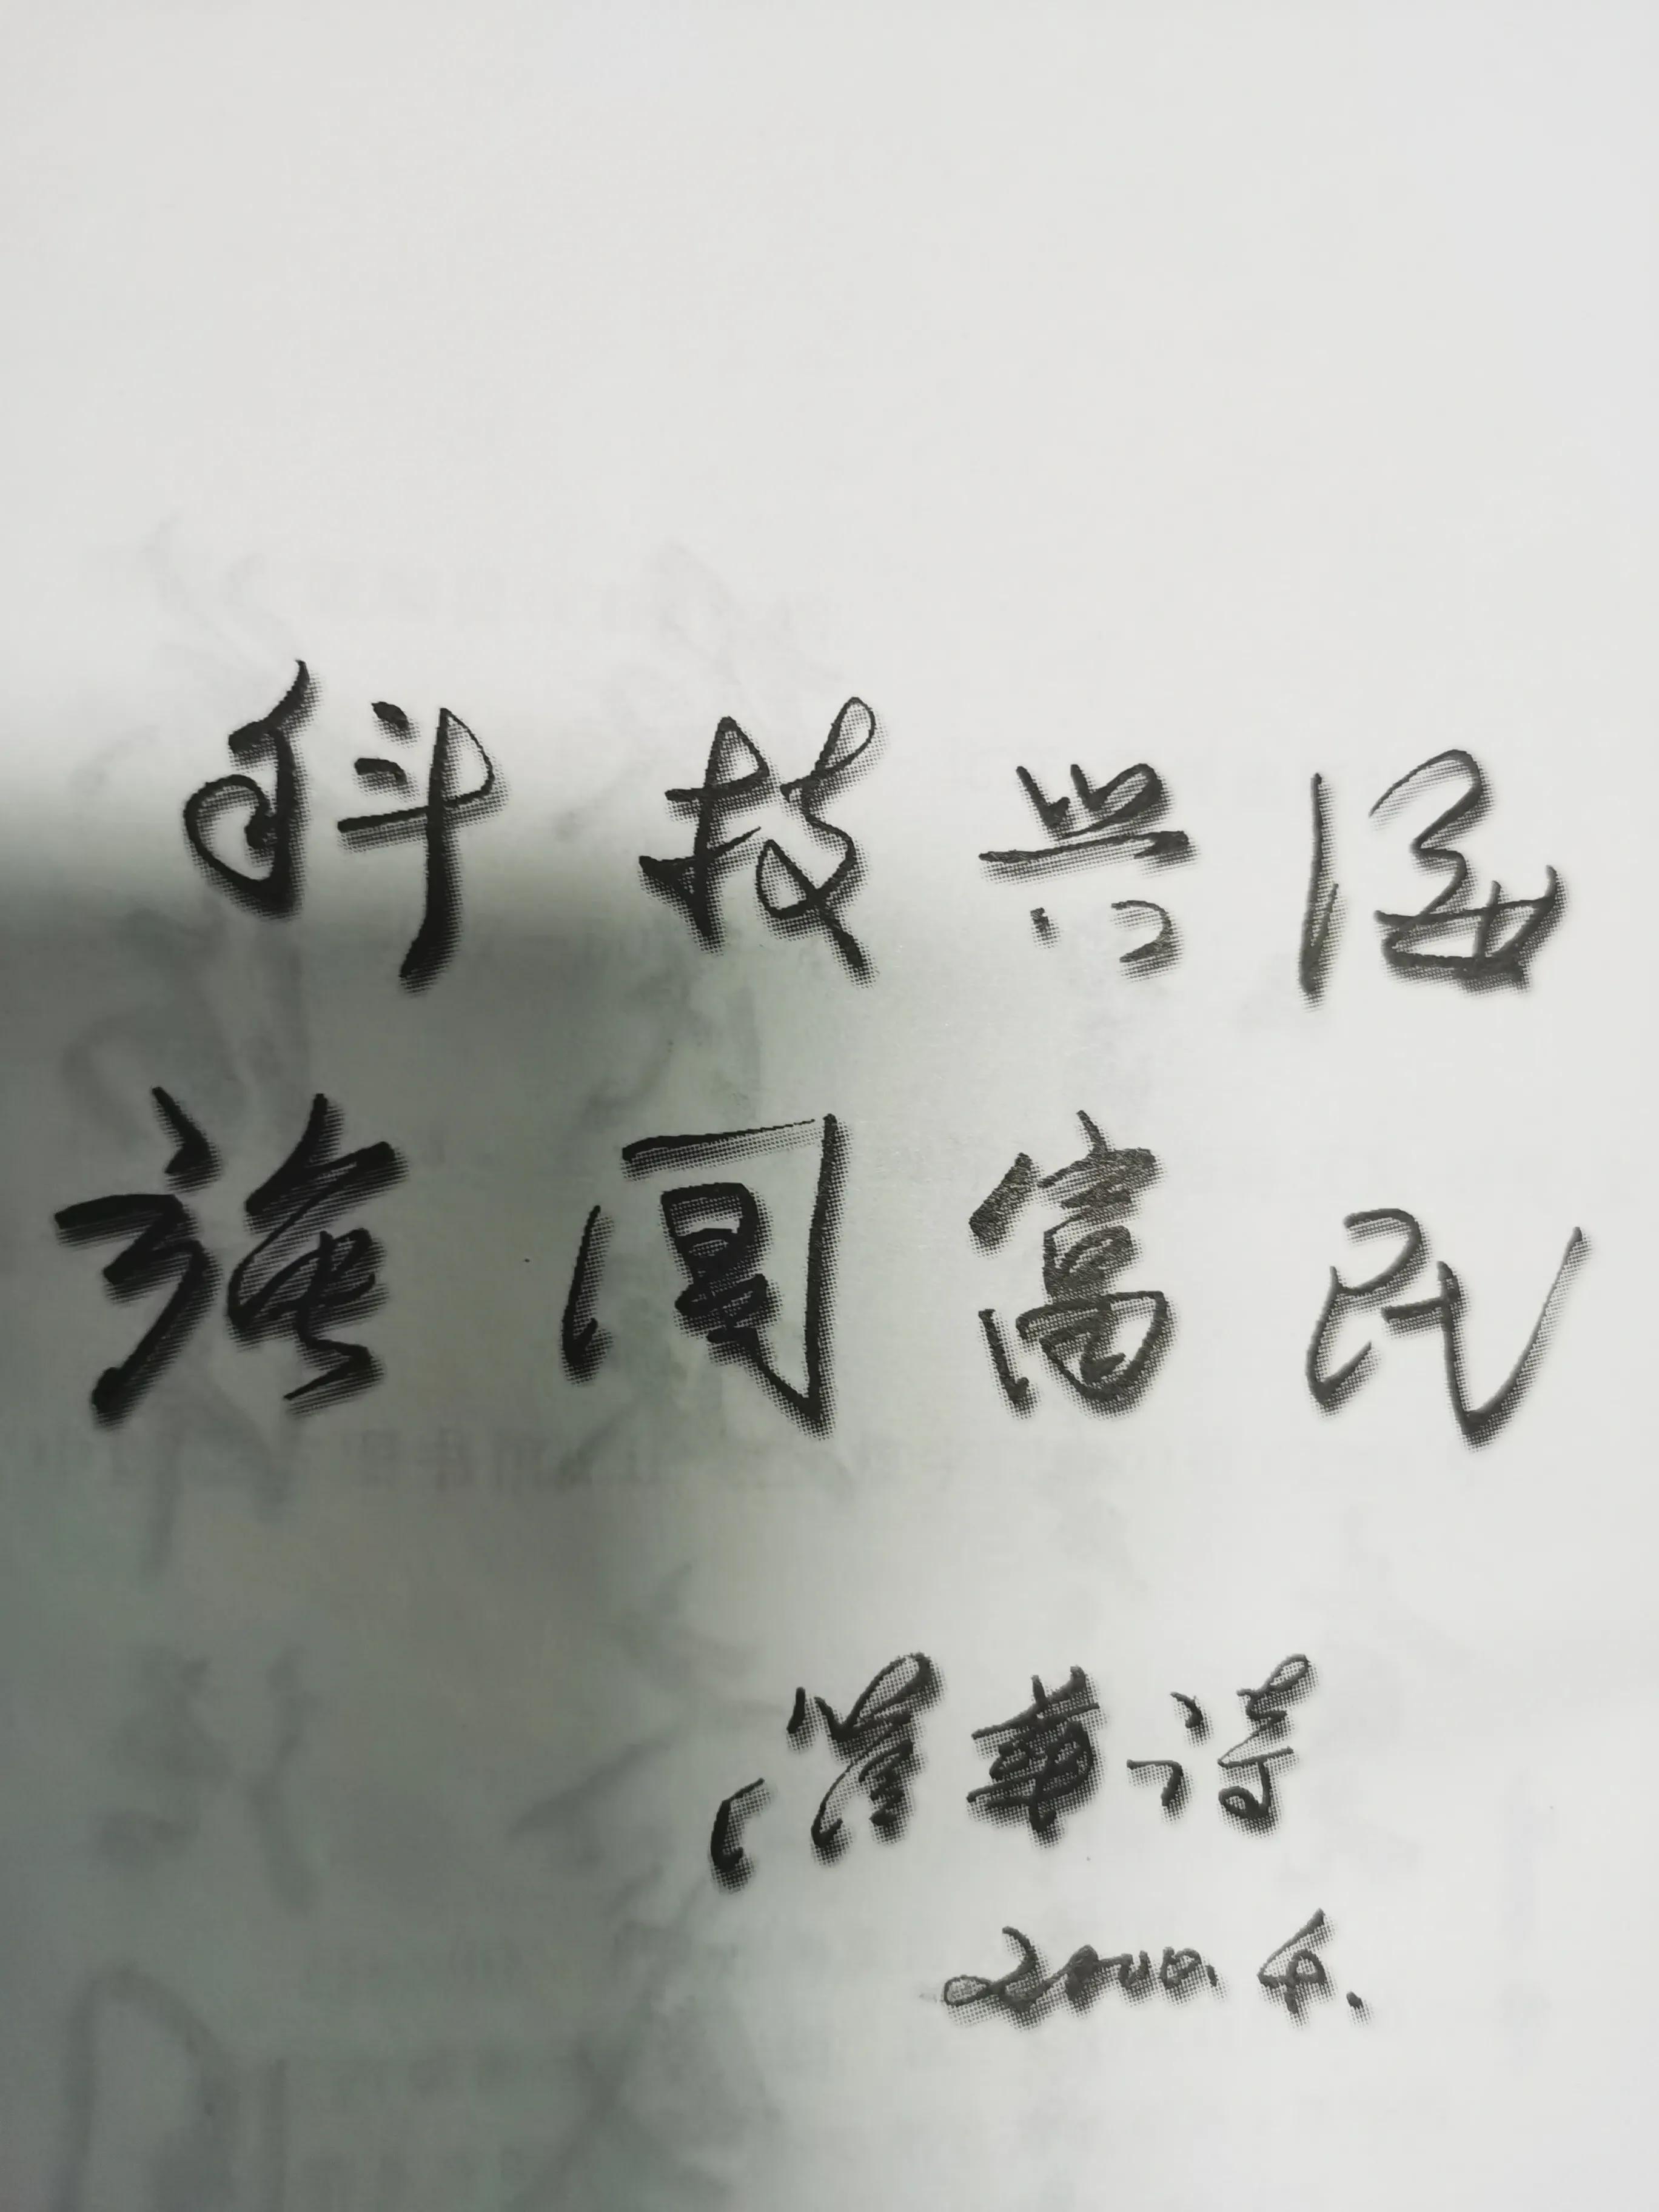 科技兴海
强国富民
管华诗
2000.6.